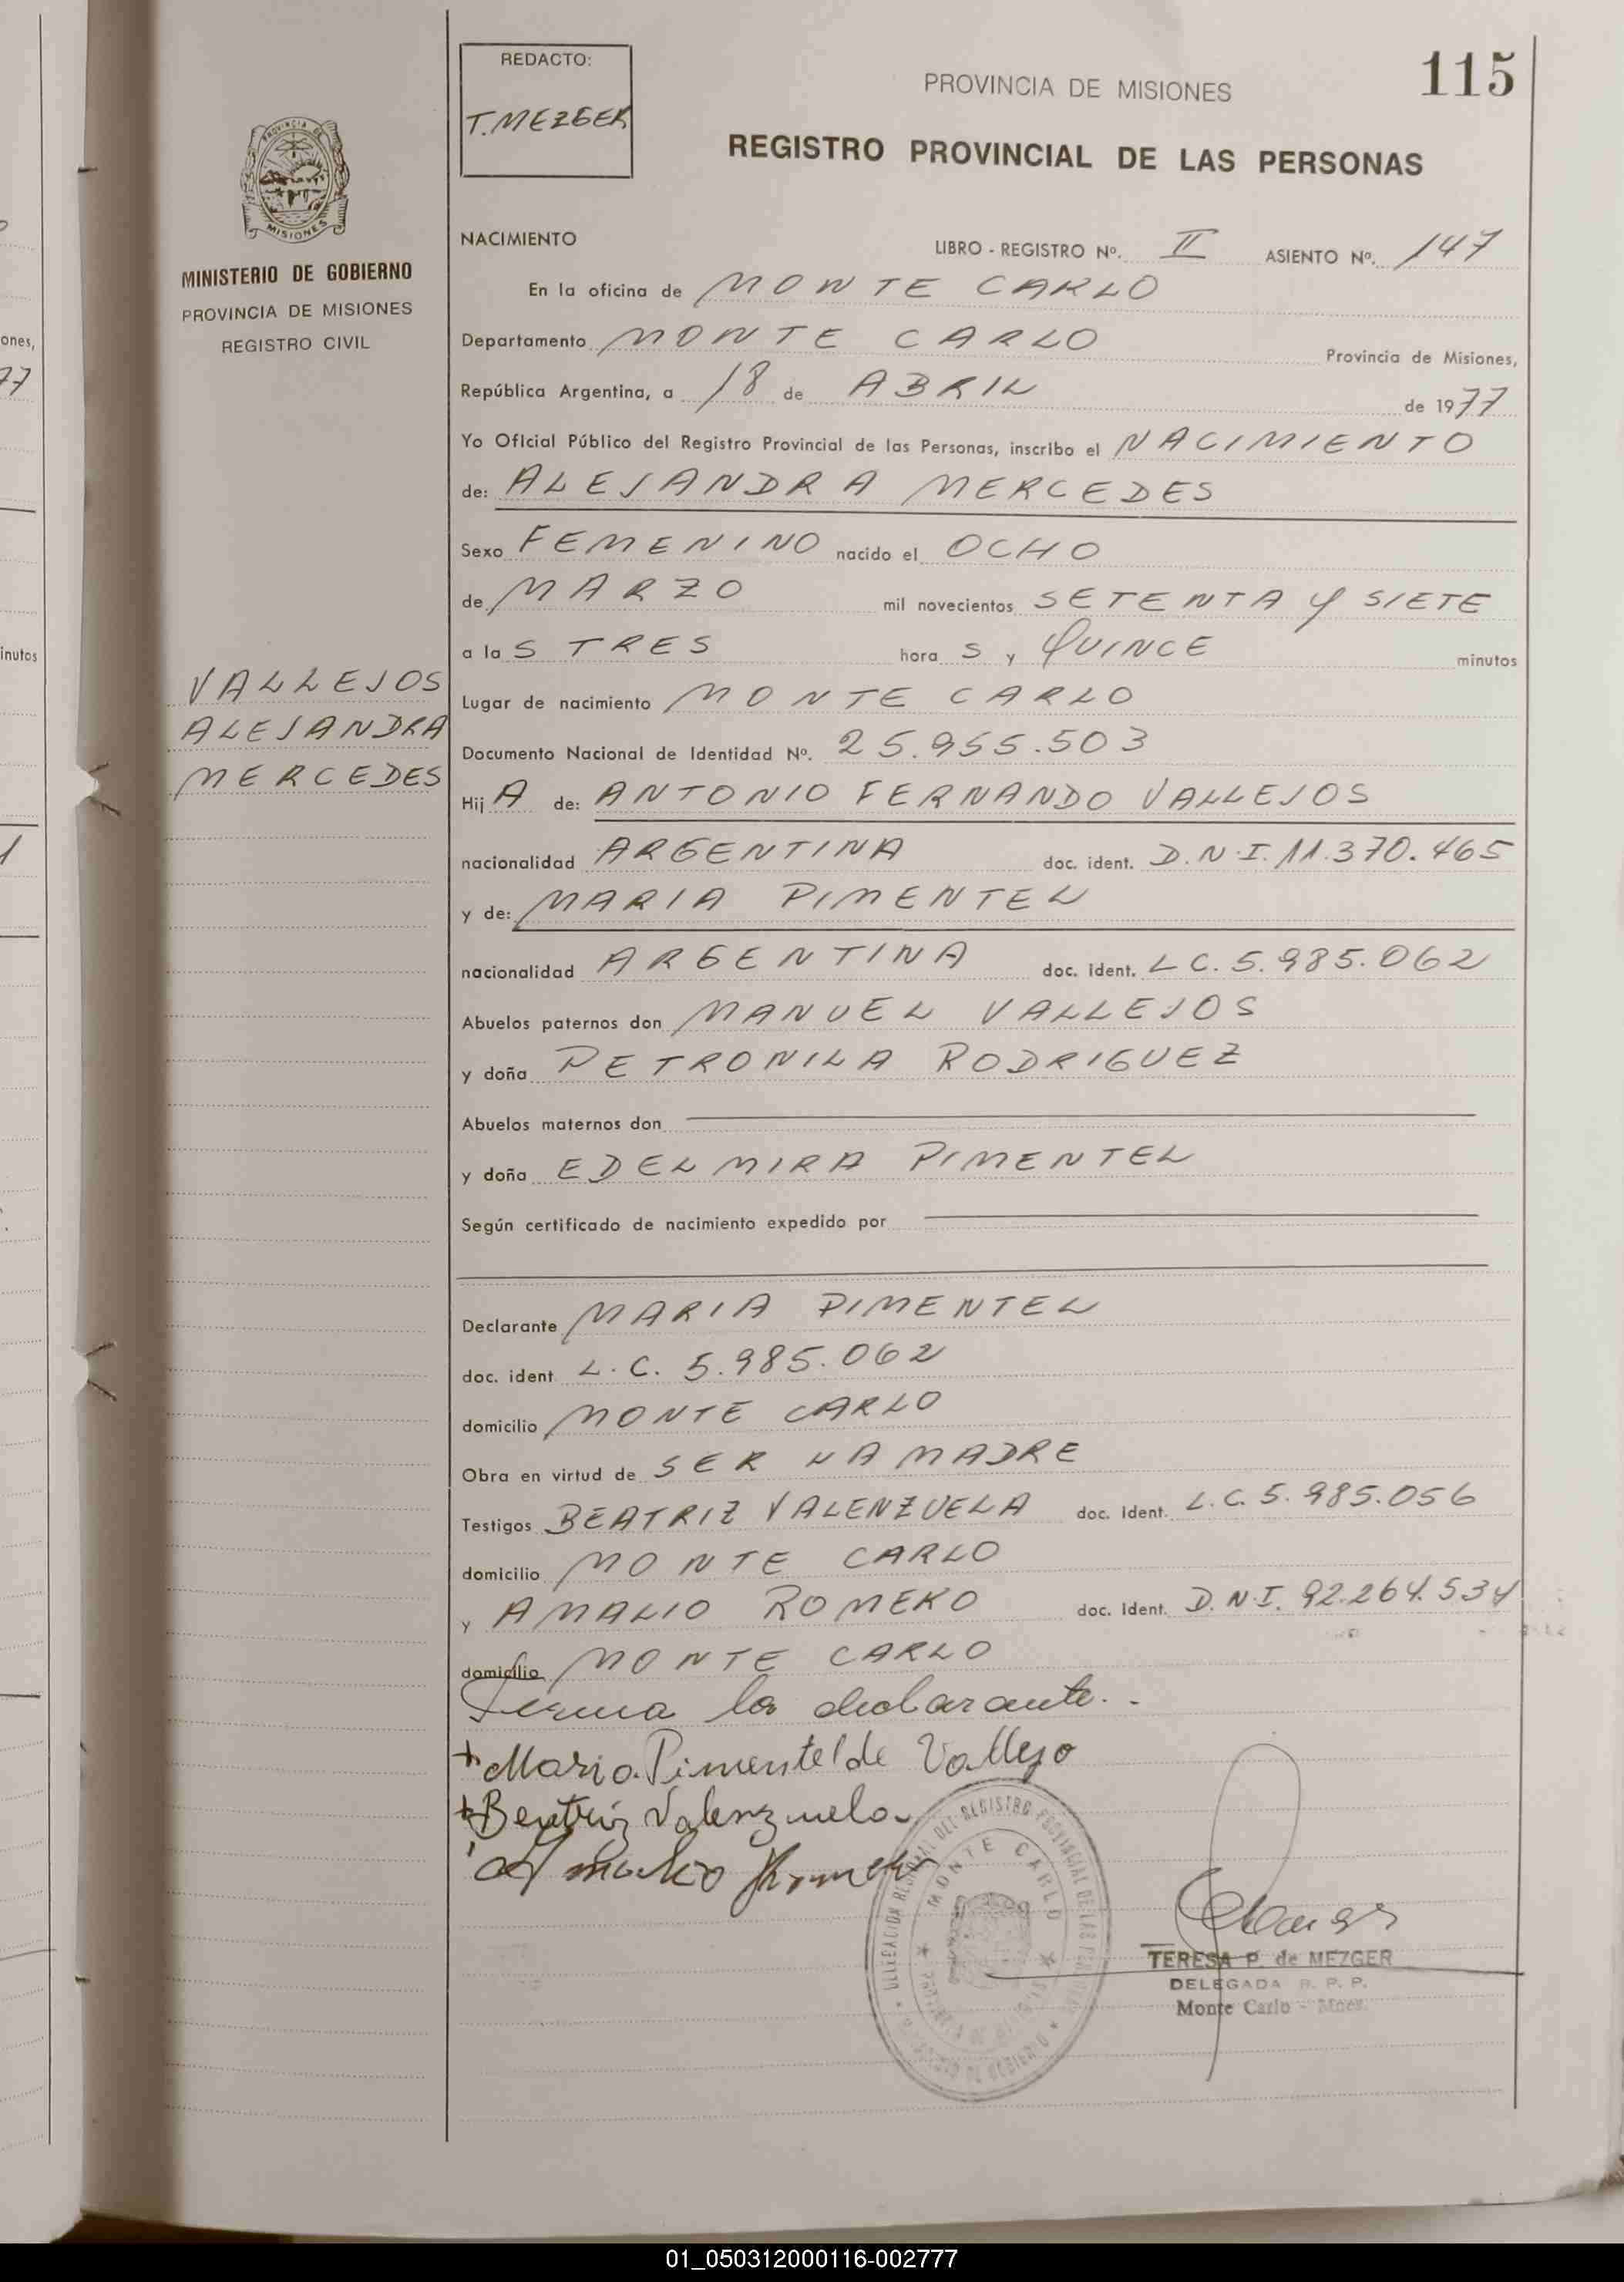 REDACTO:
T. MEZGER
PROVINCIA DE MISIONES
115
REGISTRO PROVINCIAL DE LAS PERSONAS
PROVINCIA DE
MISIONES
MINISTERIO DE GOBIERNO
PROVINCIA DE MISIONES
REGISTRO CIVIL
NACIMIENTO
LIBRO - REGISTRO Nº. II ASIENTO Nº. 147
En la oficina de MONTE CARLO
Departamento MONTE CARLO Provincia de Misiones,
República Argentina, a 18 de ABRIL de 1977
Yo Oficial Público del Registro Provincial de las Personas, inscribo el NACIMIENTO
de: ALEJANDRA MERCEDES
Sexo FEMENINO nacido el OCHO
de MARZO mil novecientos SETENTA Y SIETE
a las TRES hora s y QUINCE minutos
VALLEJOS
ALEJANDRA
MERCEDES
Lugar de nacimiento MONTE CARLO
Documento Nacional de Identidad Nº. 25.955.503
Hij A de: ANTONIO FERNANDO VALLEJOS
nacionalidad ARGENTINA doc. ident. D.N.I. 11.370.465
y de: MARIA PIMENTEL
nacionalidad ARGENTINA doc. ident. L C. 5.985.062
Abuelos paternos don MANUEL VALLEJOS
y doña PETRONILA RODRIGUEZ
Abuelos maternos don
y doña EDELMIRA PIMENTEL
Según certificado de nacimiento expedido por
Declarante MARIA PIMENTEL
doc. ident. L.C. 5.985.062
domicilio MONTE CARLO
Obra en virtud de SER LA MADRE
Testigos BEATRIZ VALENZUELA doc. ident. L.C. 5.985.056
domicilio MONTE CARLO
y AMALIO ROMERO doc. Ident. D.N.I. 92.264.534
domicilio MONTE CARLO
Firma la declarante.-
+ Maria Pimentel de Vallejo
+ Beatriz Valenzuela
Amalio Romero
DELEGACION REGIONAL DEL REGISTRO PROVINCIAL DE LAS PERSONAS
MONTE CARLO
TERESA P. de MEZGER
DELEGADA R. P. P.
Monte Carlo - Mnes.
ones,
77
inutos
1
01_050312000116-002777